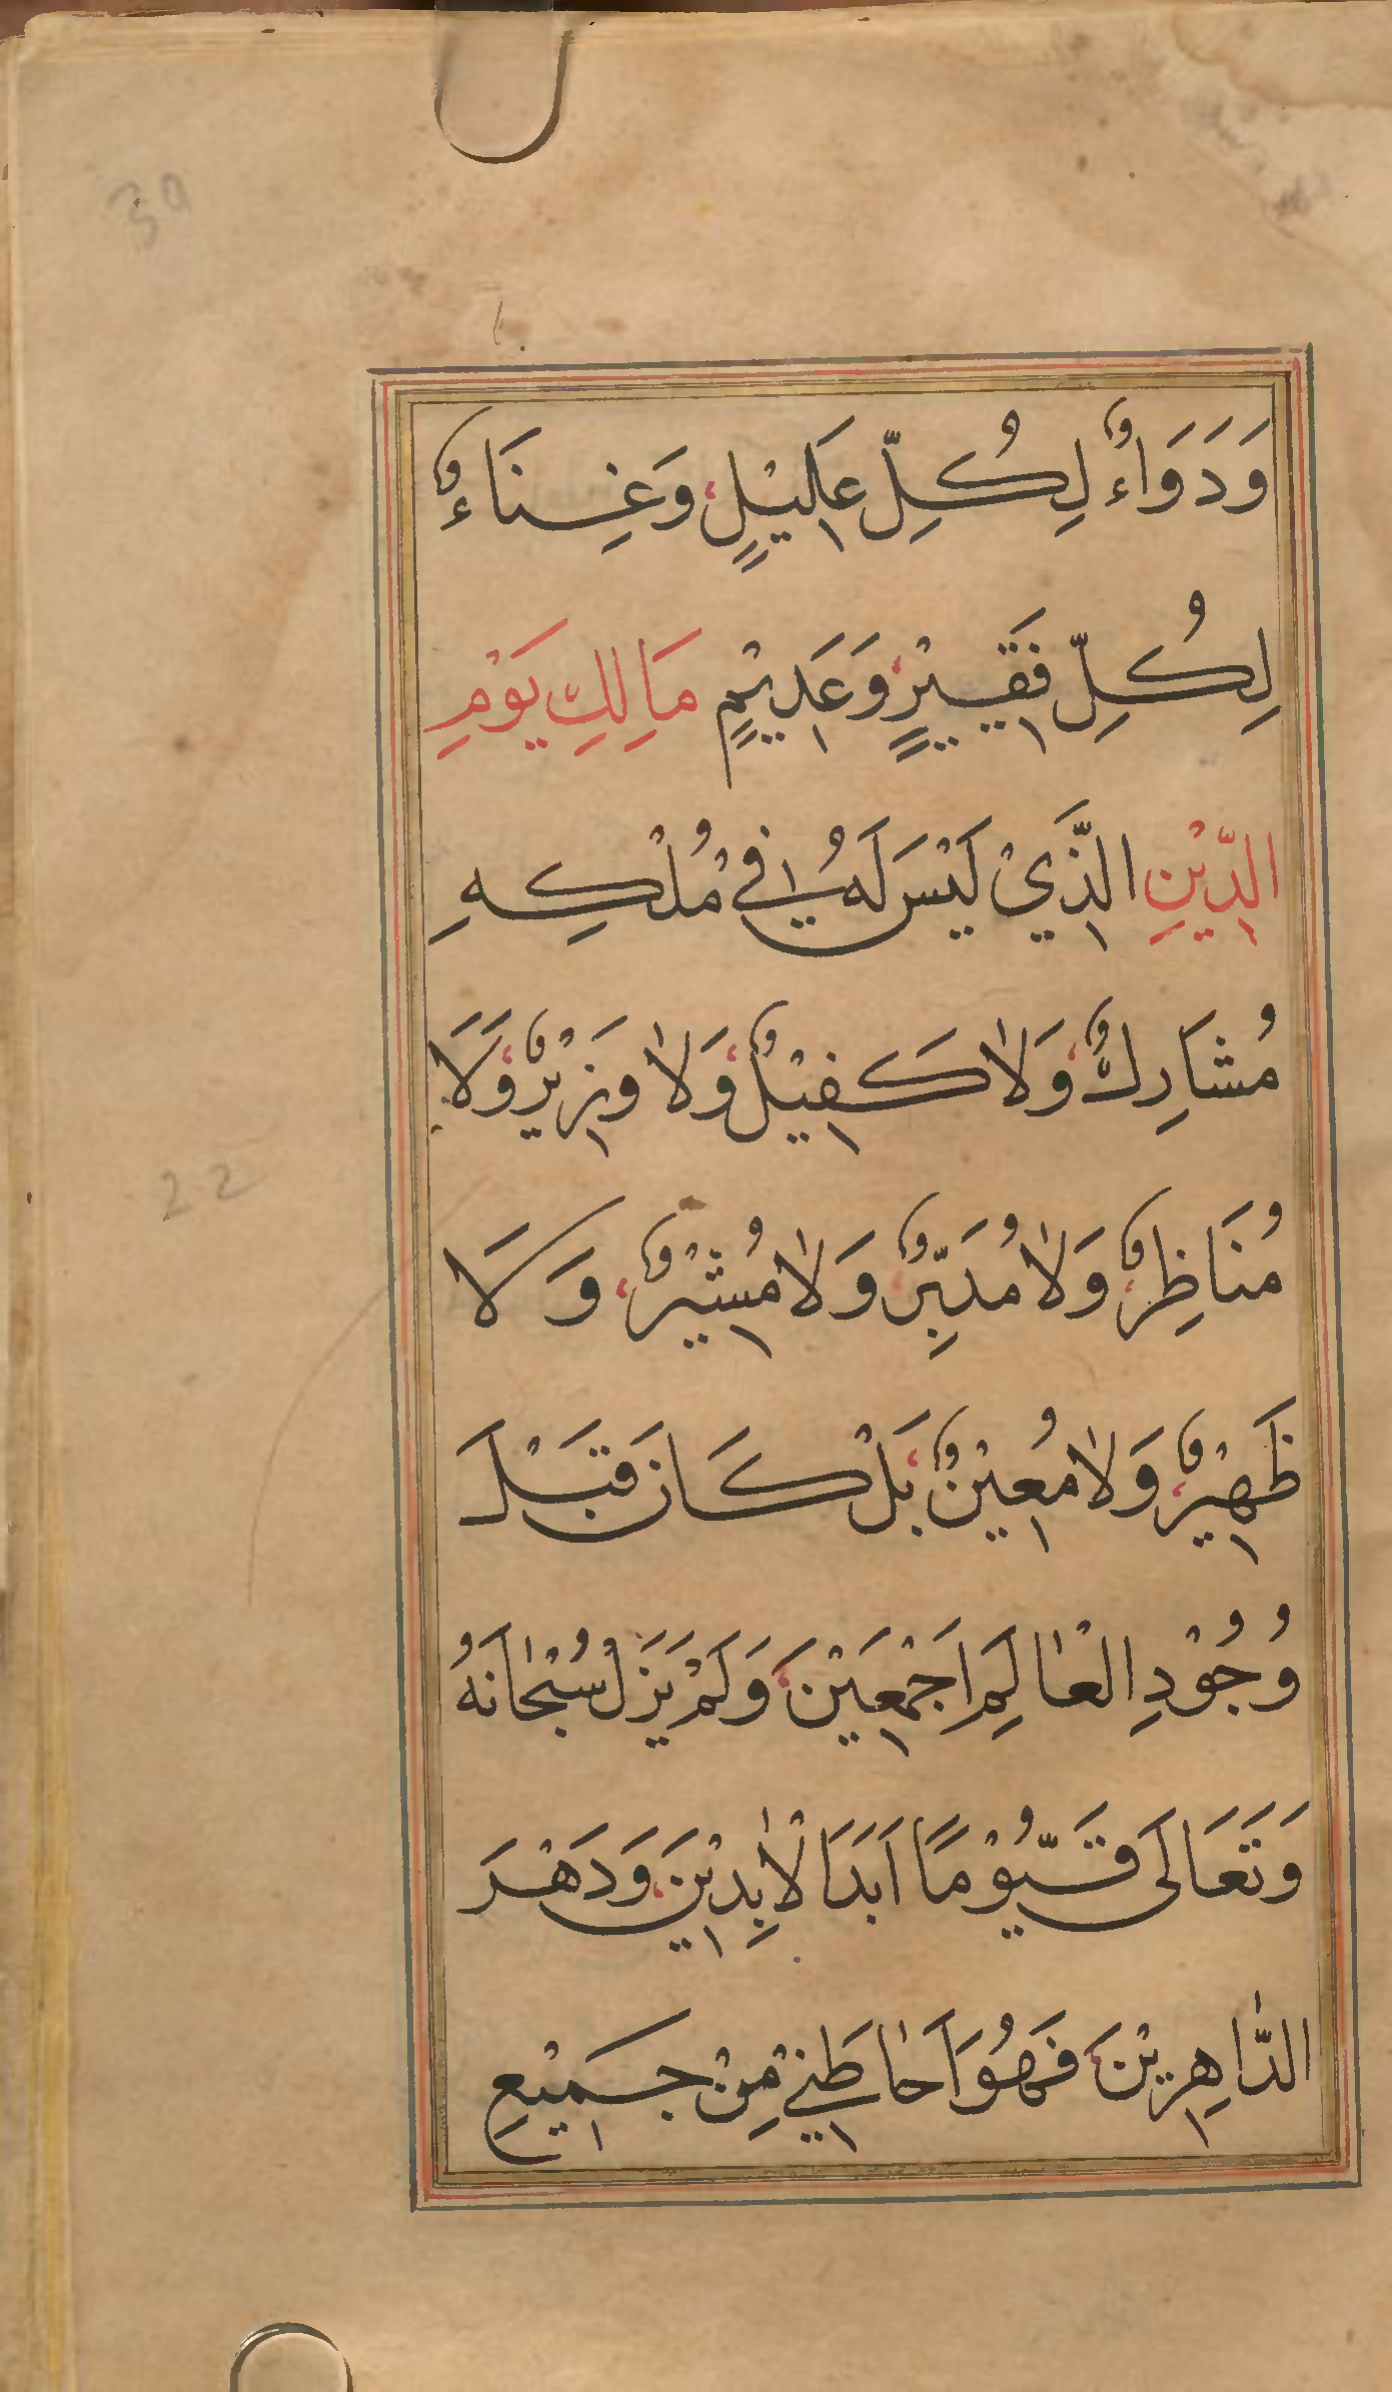 30
وَدَوَاءٌ لِكُلِّ عَلِيْلٍ وَغِنَاءٌ
لِكُلِّ فَقِيْرٍ وَعَدِيْمٍ مَالِكِ يَوْمِ
الدِّيْنِ الَّذِيْ لَيْسَ لَهُ فِي مُلْكِهِ
مُشَارِكٌ وَلَا كَفِيْلٌ وَلَا وَزِيْرٌ وَلَا
مُنَاظِرٌ وَلَا مُدَبِّرٌ وَلَا مُشِيْرٌ وَلَا
ظَهِيْرٌ وَلَا مُعِيْنٌ بَلْ كَانَ قَبْلَ
22
وُجُوْدِ الْعٰالَمِ اَجْمَعِيْنَ وَلَمْ يَزَلْ سُبْحٰانَهُ
وَتَعَالَى قَيُّوْمًا اَبَدَ الْاٰبِدِيْنَ وَدَهْرَ
الدّٰاهِرِيْنَ فَهُوَ اَحٰاطَنِيْ مِنْ جَمِيْعِ